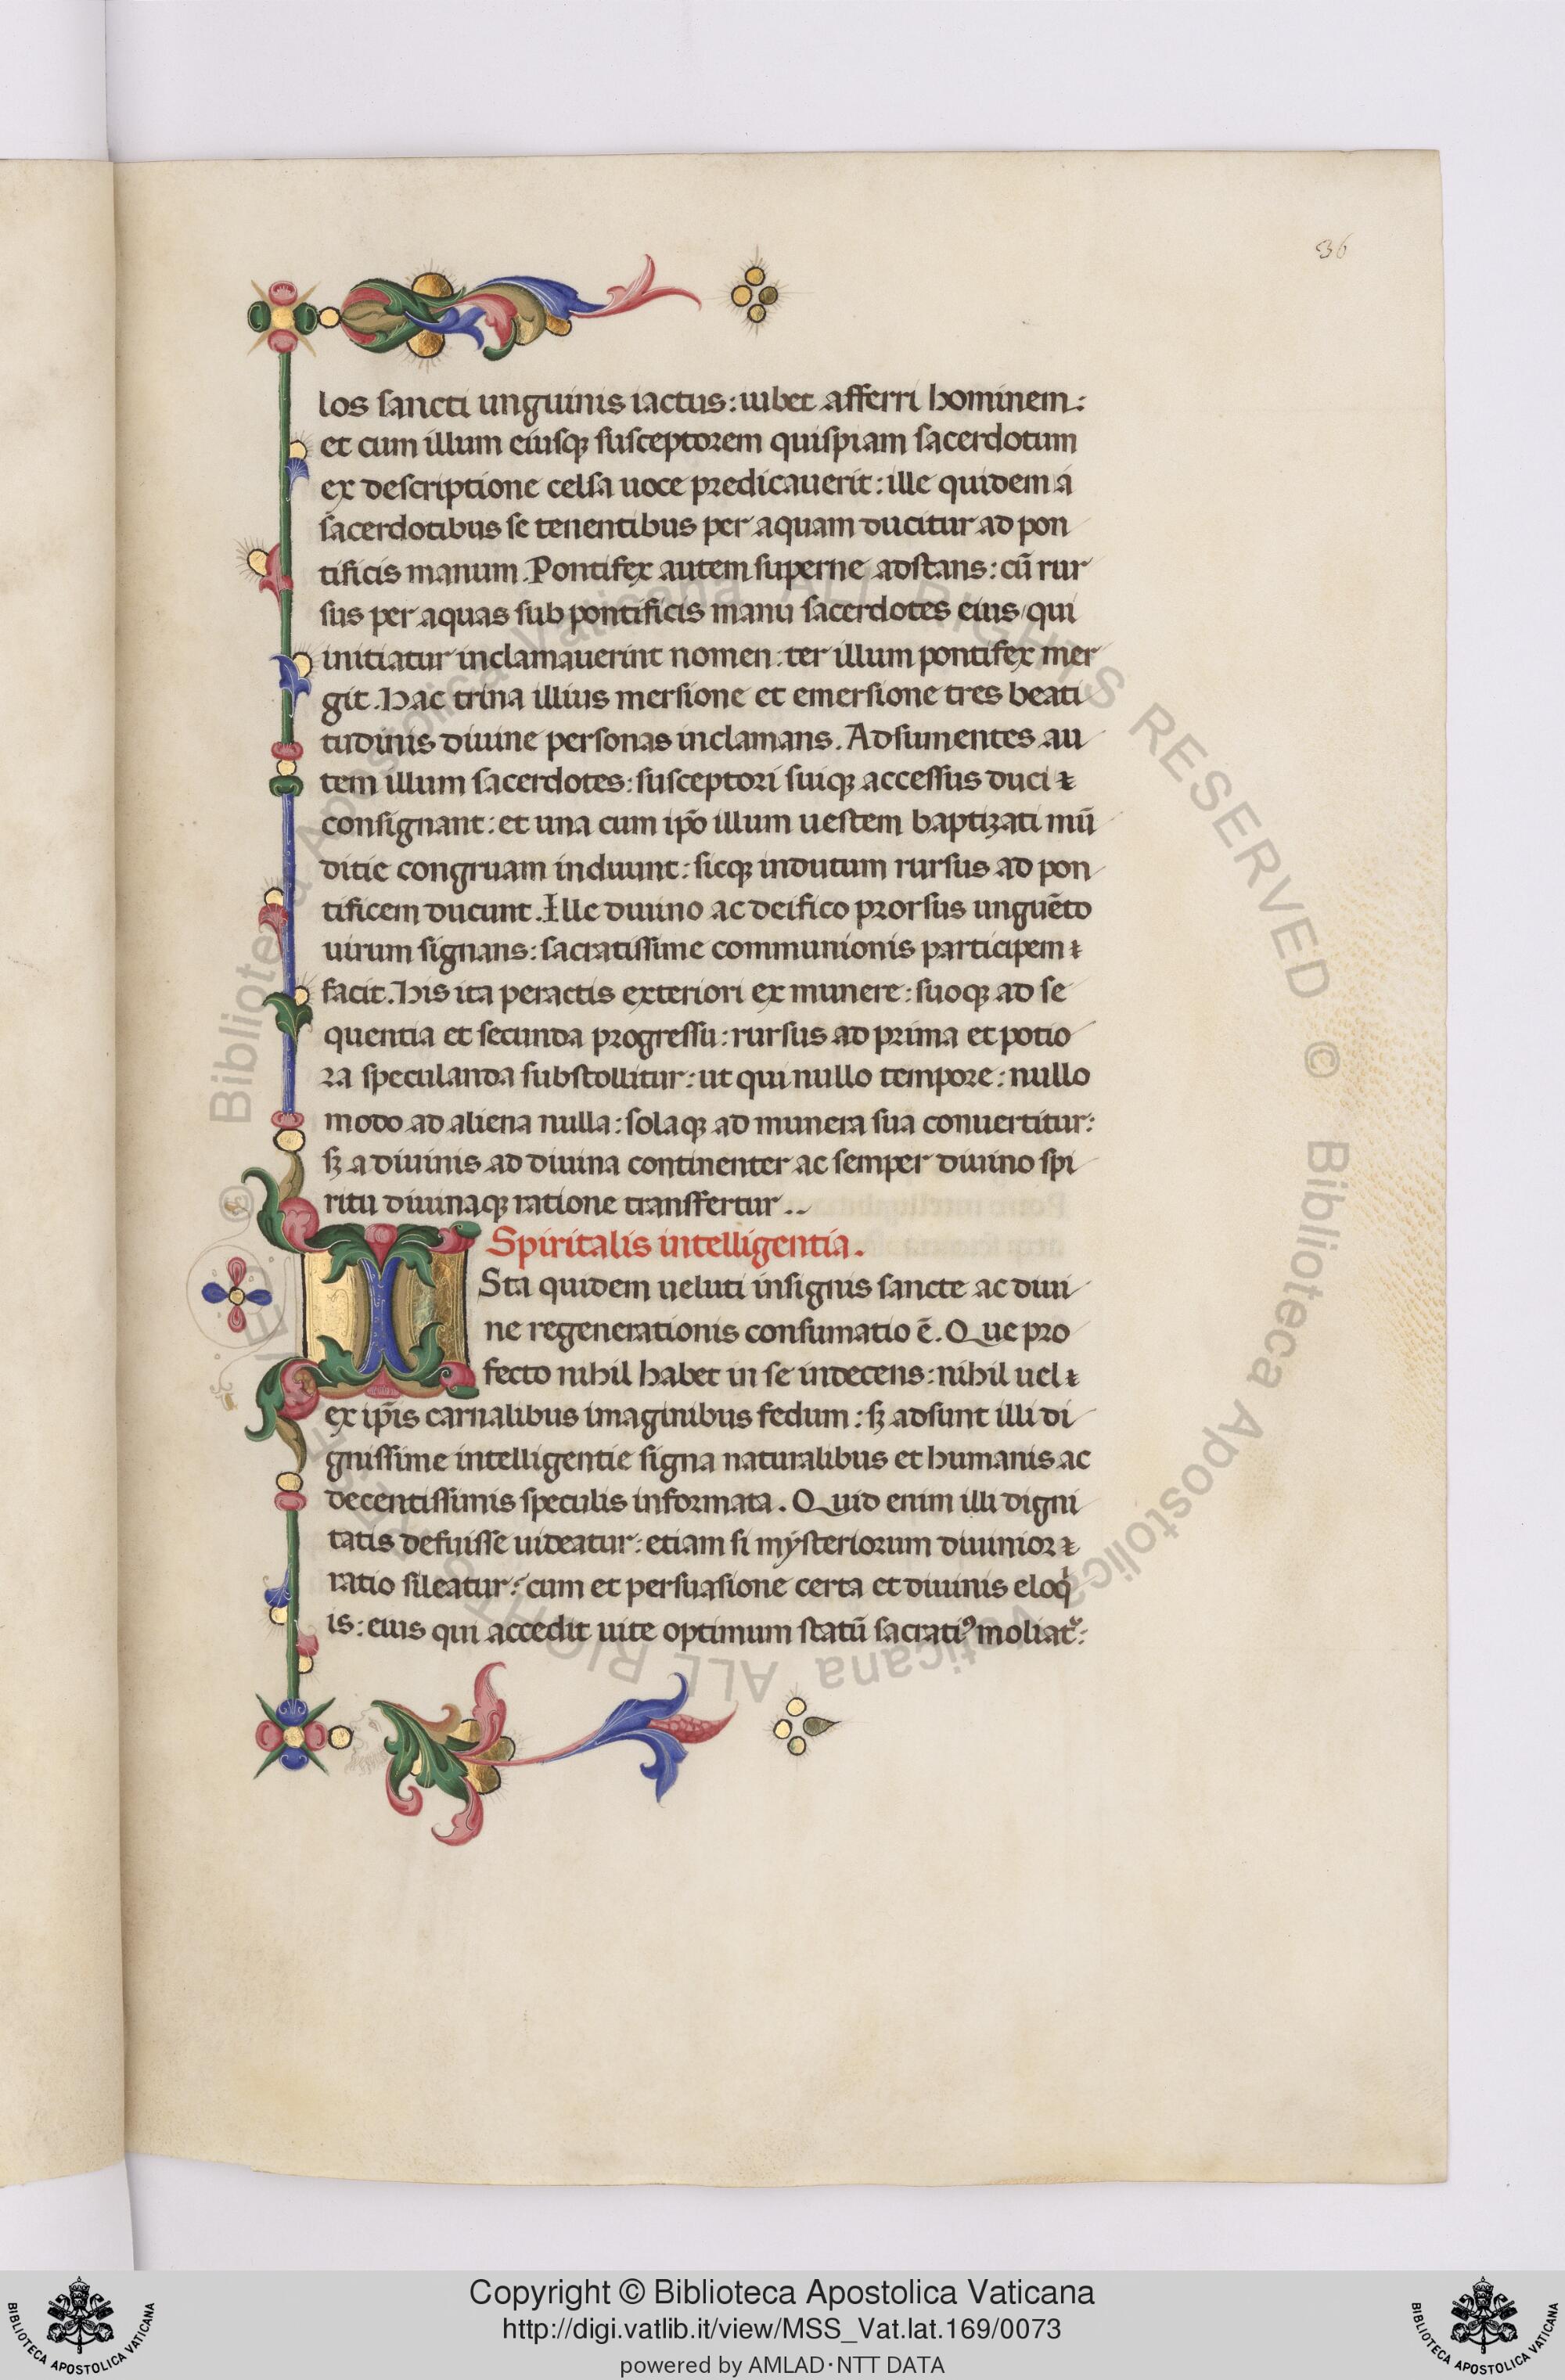 36
los sancti unguinis iactus: iubet afferri hominem:
et cum illum eiusqꝫ susceptorem quispiam sacerdotum
ex descriptione celsa uoce predicauerit: ille quidem a
sacerdotibus se tenentibus per aquam ducitur ad pon
tificis manum. Pontifex autem superne adstans: cũ rur
sus per aquas sub pontificis manu sacerdotes eius/qui
initiatur inclamauerint nomen: ter illum pontifex mer
git. Hac trina illius mersione et emersione tres beati
tudinis diuine personas inclamans. Adsumentes au
tem illum sacerdotes: susceptori suiqꝫ accessus duci
consignant: et una cum ip̃o illum uestem baptizati mũ
ditie congruam induunt: sicqꝫ indutum rursus ad pon
tificem ducunt. Ille diuino ac deifico prorsus unguẽto
uirum signans: sacratissime communionis participem
facit. His ita peractis exteriori ex munere: suoqꝫ ad se
quentia et secunda progressu: rursus ad prima et potio
ra speculanda substollitur: ut qui nullo tempore: nullo
modo ad aliena nulla: solaqꝫ ad munera sua conuertitur:
sꝫ a diuinis ad diuina continenter ac semper diuino spi
ritu diuinaqꝫ ratione transffertur..
Spiritalis intelligentia.
ISta quidem ueluti insignis sancte ac diui
ne regenerationis consumatio ẽ. Que pro
fecto nihil habet in se indecens: nihil uel
ex ip̃is carnalibus imaginibus fedum: sꝫ adsunt illi di
gnissime intelligentie signa naturalibus et humanis ac
decentissimis speculis informata. Quid enim illi digni
tatis defuisse uideatur: etiam si mysteriorum diuinior
ratio sileatur: cum et persuasione certa et diuinis eloqͥ
is: eius qui accedit uite optimum statũ sacratiꝰ moliat᷑:
Copyright © Biblioteca Apostolica Vaticana
http://digi.vatlib.it/view/MSS_Vat.lat.169/0073
powered by AMLAD·NTT DATA
BIBLIOTECA APOSTOLICA VATICANA
BIBLIOTECA APOSTOLICA VATICANA
© Biblioteca Apostolica Vaticana ALL RIGHTS RESERVED © Biblioteca Apostolica Vaticana ALL RIGHTS RESERVED